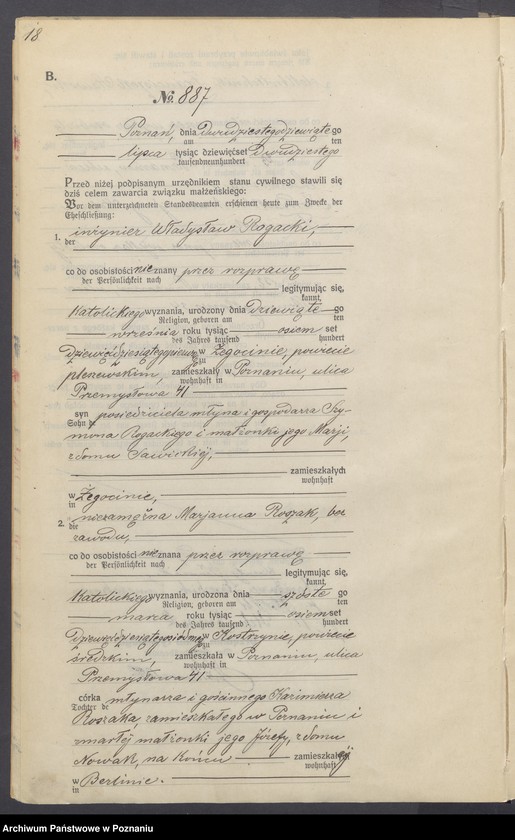 18
B.
No. 887
Poznań, dnia Dwudziestegodziewiątego
am ten
lipca tysiąc dziewięćset Dwudziestego
tausendneunhundert
Przed niżej podpisanym urzędnikiem stanu cywilnego stawili się
dziś celem zawarcia związku małżeńskiego:
Vor dem unterzeichneten Standesbeamten erschienen heute zum Zwecke der
Eheschließung:
1. inżynier Władysław Rogacki,
der
co do osobistości nieznany przez rozprawę
der Persönlichkeit nach
legitymując się,
kannt,
Katolickiego wyznania, urodzony dnia Dziewiątego
Religion, geboren am ten
września roku tysiąc osiemset
des Jahres tausend hundert
Dziewięćdziesiątego w Żegocinie, powiecie
zu
pleszewskim, zamieszkały w Poznaniu, ulica
wohnhaft in
Przemysłowa 41
syn posiedziciela młyna i gospodarza Szy-
Sohn de
mona Rogackiego i małżonki jego Marji,
z domu Sawickiej,
zamieszkałych
wohnhaft
w Żegocinie,
in
2. niezamężna Marjanna Roszak, bez
die
zawodu,
co do osobistości nieznana przez rozprawę
der Persönlichkeit nach
legitymując się,
kannt,
Katolickiego wyznania, urodzona dnia szóstego
Religion, geboren am ten
marca roku tysiąc osiemset
des Jahres tausend hundert
w Kostrzynie, powiecie
zu
średzkim, zamieszkała w Poznaniu, ulica
wohnhaft in
Przemysłowa 41
córka młynarza i gościnnego Kazimierza
Tochter de
Roszaka zamieszkałego w Poznaniu i
zmarłej małżonki jego Józefy, z domu
Nowak, na końcu zamieszkałej
wohnhaft
w Berlinie.
in
Archiwum Państwowe w Poznaniu